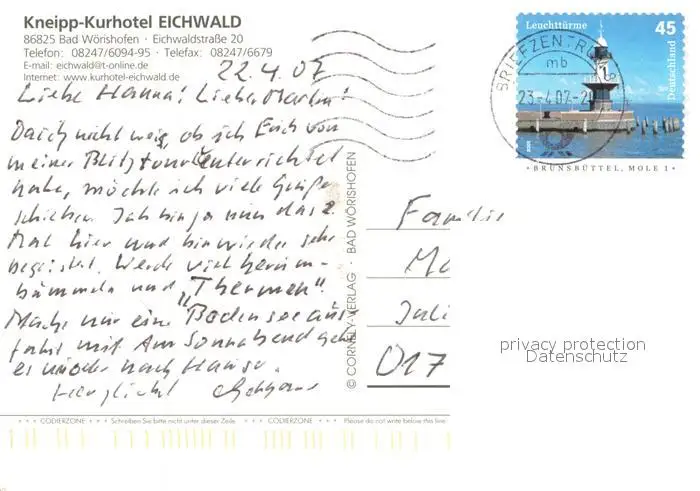 Kneipp-Kurhotel EICHWALD
86825 Bad Wörishofen · Eichwaldstraße 20
Telefon: 08247/6094-95 · Telefax: 08247/6679
E-mail: eichwald@t-online.de
Internet: www.kurhotel-eichwald.de
22.4.07
Liebe Hanna! Lieber Martin!
Da ich nicht weiß, ob ich Euch von
meiner Blitztour unterrichtet
habe, möchte ich viele Grüße
schicken. Ich bin ja nun das 2.
Mal hier und bin wieder sehr
begeistert. Werde viel herum-
bummeln und „Thermen".
Mache nur eine Bodensee aus-
fahrt mit. Am Sonnabend geht
es wieder nach Hause.
Herzlichst
© CORNELY-VERLAG · BAD WÖRISHOFEN
Leuchttürme
45
Deutschland
BRUNSBÜTTEL, MOLE 1
BRIEFZENTRUM
mb
23.-4.07-2
Familie
Ma
Juli
017
privacy protection
Datenschutz
+ + + CODIERZONE + + + Schreiben Sie bitte nicht unter dieser Zeile + + + CODIERZONE + + + Please do not write below this line